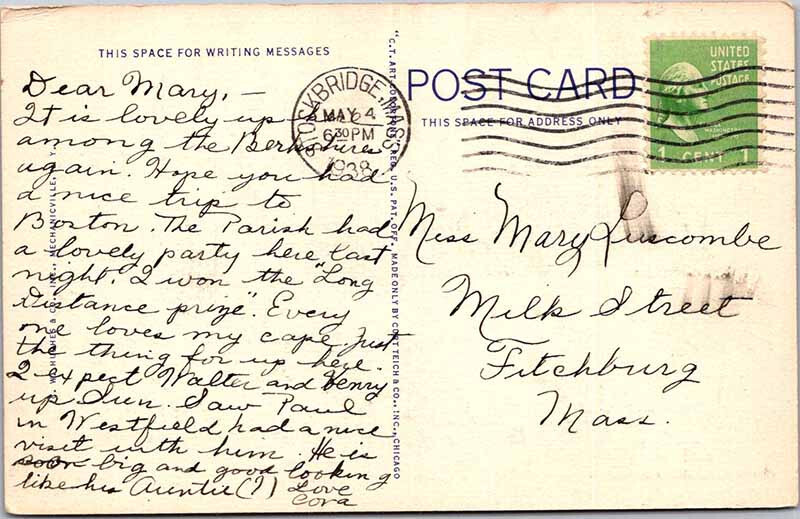 THIS SPACE FOR WRITING MESSAGES
Dear Mary, —
It is lovely up
among the Berkshires
again. Hope you had
a nice trip to
Boston. The Parish had
a lovely party here last
night. I won the "Long
Distance prize". Every
one loves my cape. Just
the thing for up here.
I expect Walter and Henry
up Sun. Saw Paul
in Westfield had a nice
visit with him. He is
big and good looking
like his Auntie (?) Love
Cora
"C.T. ART-COLORTONE" REG. U.S. PAT. OFF. MADE ONLY BY CURT TEICH & CO., INC., CHICAGO
INC., MECHANICVILLE,
STOCKBRIDGE, MASS.
MAY 4
6 30 PM
1938
POST CARD
THIS SPACE FOR ADDRESS ONLY
UNITED
STATES
POSTAGE
WASHINGTON
1 CENT 1
Miss Mary Luscombe
Milk Street
Fitchburg
Mass.